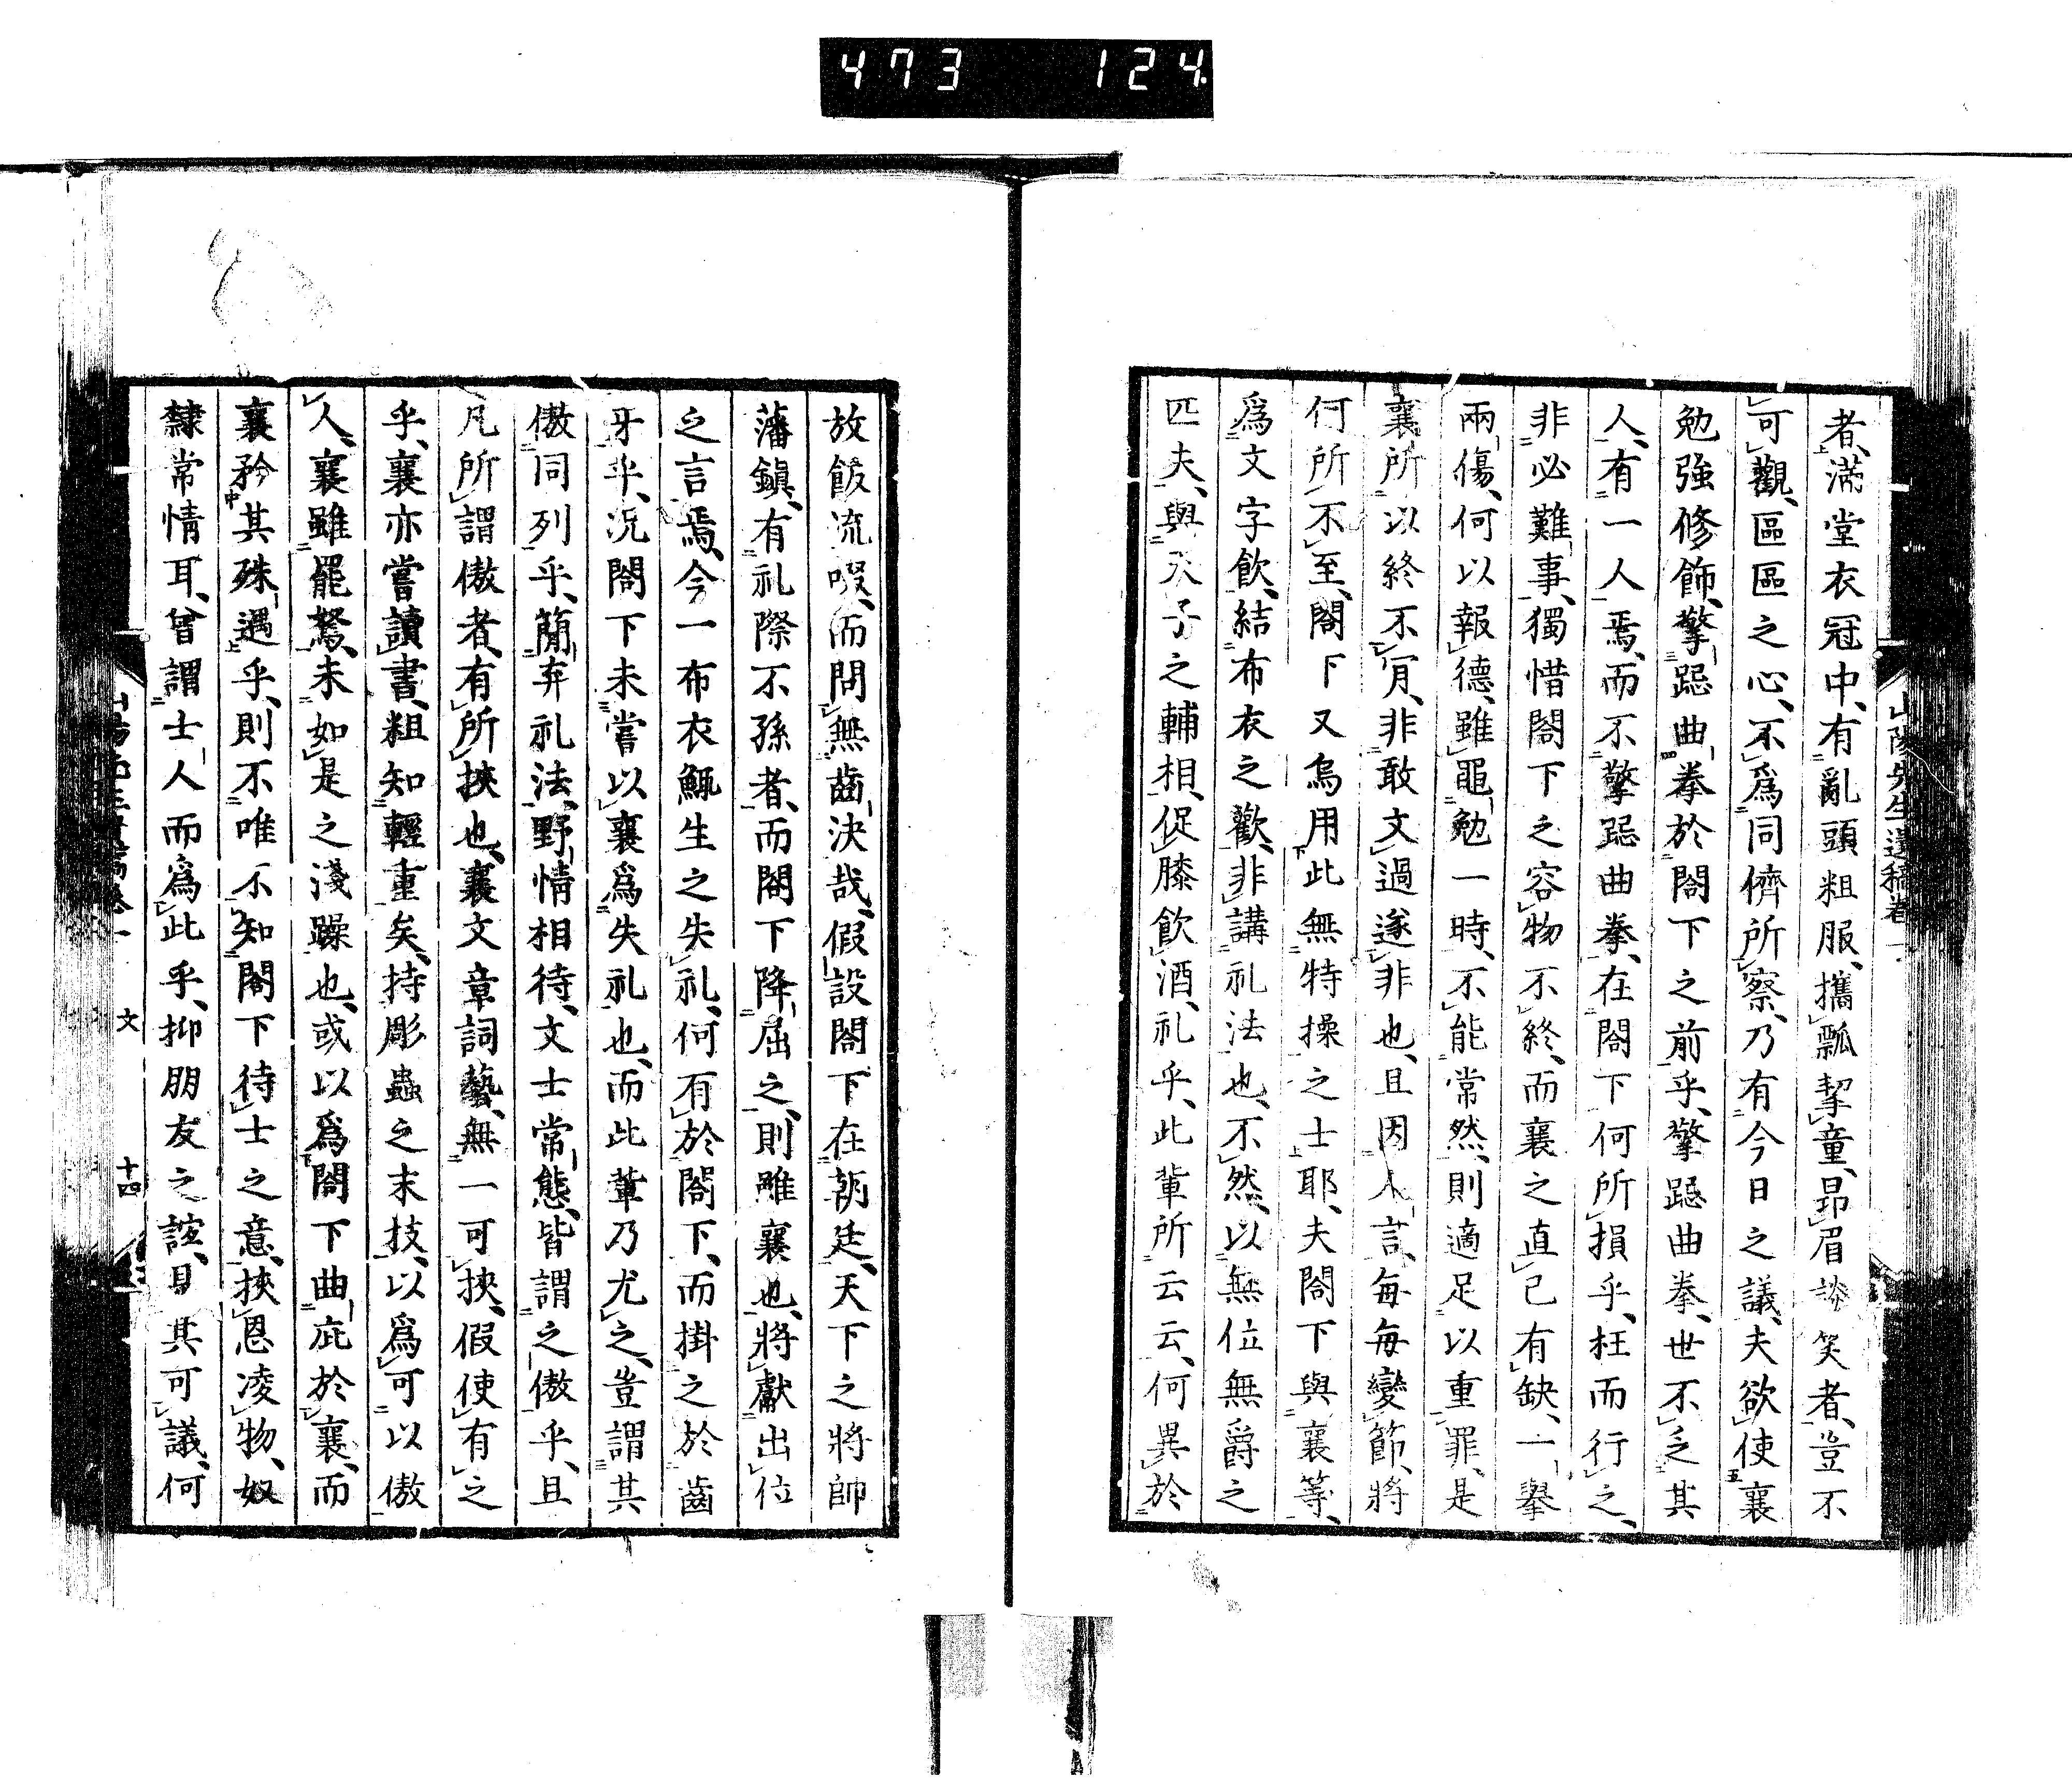 473 124
山陽先生遺稿卷一
者、滿堂衣冠中、有亂頭粗服、攜瓢挈童、昻眉談笑者、豈不
可觀、區區之心、不爲同儕所察、乃有今日之議、夫欲使襄
勉強修飾、擎跽曲拳於閤下之前乎、擎跽曲拳、世不乏其
人、有一人焉、而不擎跽曲拳、在閤下何所損乎、枉而行之、
非必難事、獨惜閤下之容物不終、而襄之直已有缺、一擧
兩傷、何以報德、雖黽勉一時、不能常然、則適足以重罪、是
襄所以終不肎、非敢文過遂非也、且因人言、每每變節、將
何所不至、閤下又烏用此無特操之士耶、夫閤下與襄等、
爲文字飮、結布衣之歡、非講礼法也、不然、以無位無爵之
匹夫、與天子之輔相、促膝飮酒、礼乎、此輩所云云、何異於
放飯流啜、而問無齒決哉、假設閤下在朝廷、天下之將帥
藩鎭、有礼際不孫者、而閤下降屈之、則雖襄也、將獻出位
之言焉、今一布衣鯫生之失礼、何有於閤下、而掛之於齒
牙乎、况閤下未嘗以襄爲失礼也、而此輩乃尤之、豈謂其
傲同列乎、簡弃礼法、野情相待、文士常態、皆謂之傲乎、且
凡所謂傲者、有所挾也、襄文章詞藝、無一可挾、假使有之
乎、襄亦嘗讀書、粗知輕重矣、持彫蟲之末技、以爲可以傲
人、襄雖罷駑、未如是之淺躁也、或以爲閤下曲庇於襄、而
襄矜其殊遇乎、則不唯不知閤下待士之意、挾恩凌物、奴
隸常情耳、曾謂士人而爲此乎、抑朋友之誼、見其可議、何
文
十四